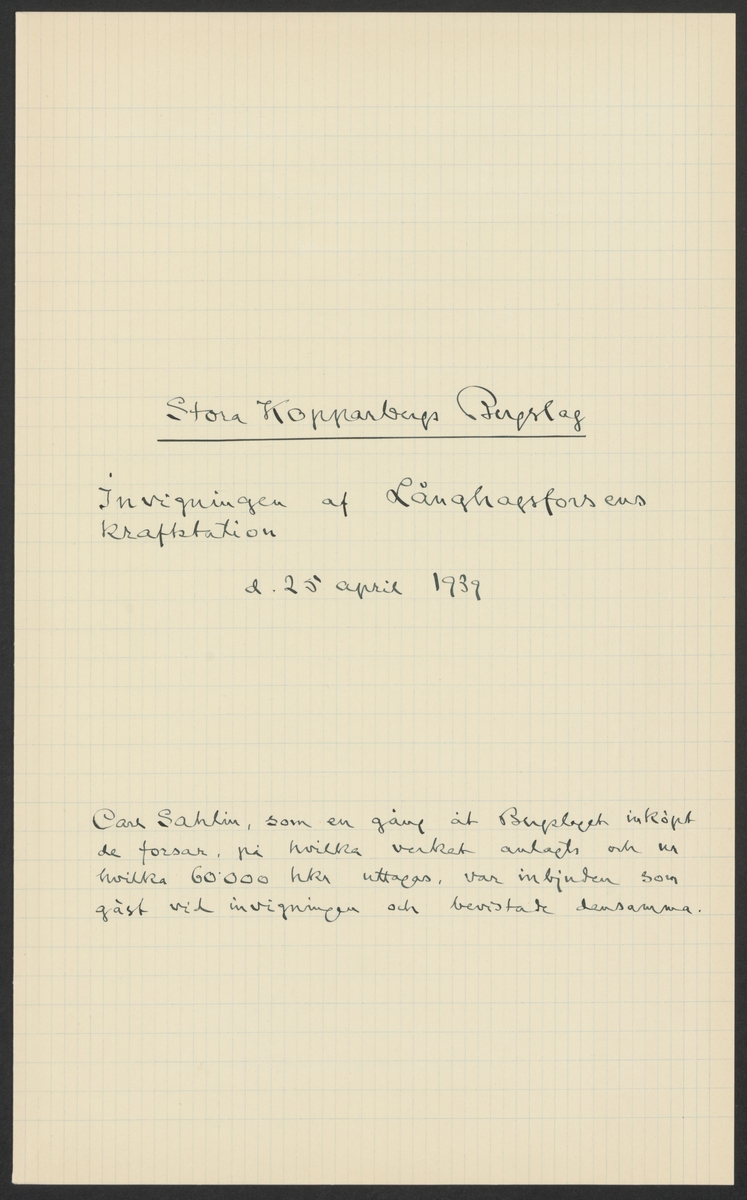 Stora Kopparbergs Bergslag
Invigningen af Långhagsforsens
kraftstation
d. 25 april 1939
Carl Sahlin, som en gång åt Bergslaget inköpt
de forsar, på hvilka verket anlagts och ur
hvilka 60'000 hkr uttagas, var inbjuden som
gäst vid invigningen och bevistade densamma.